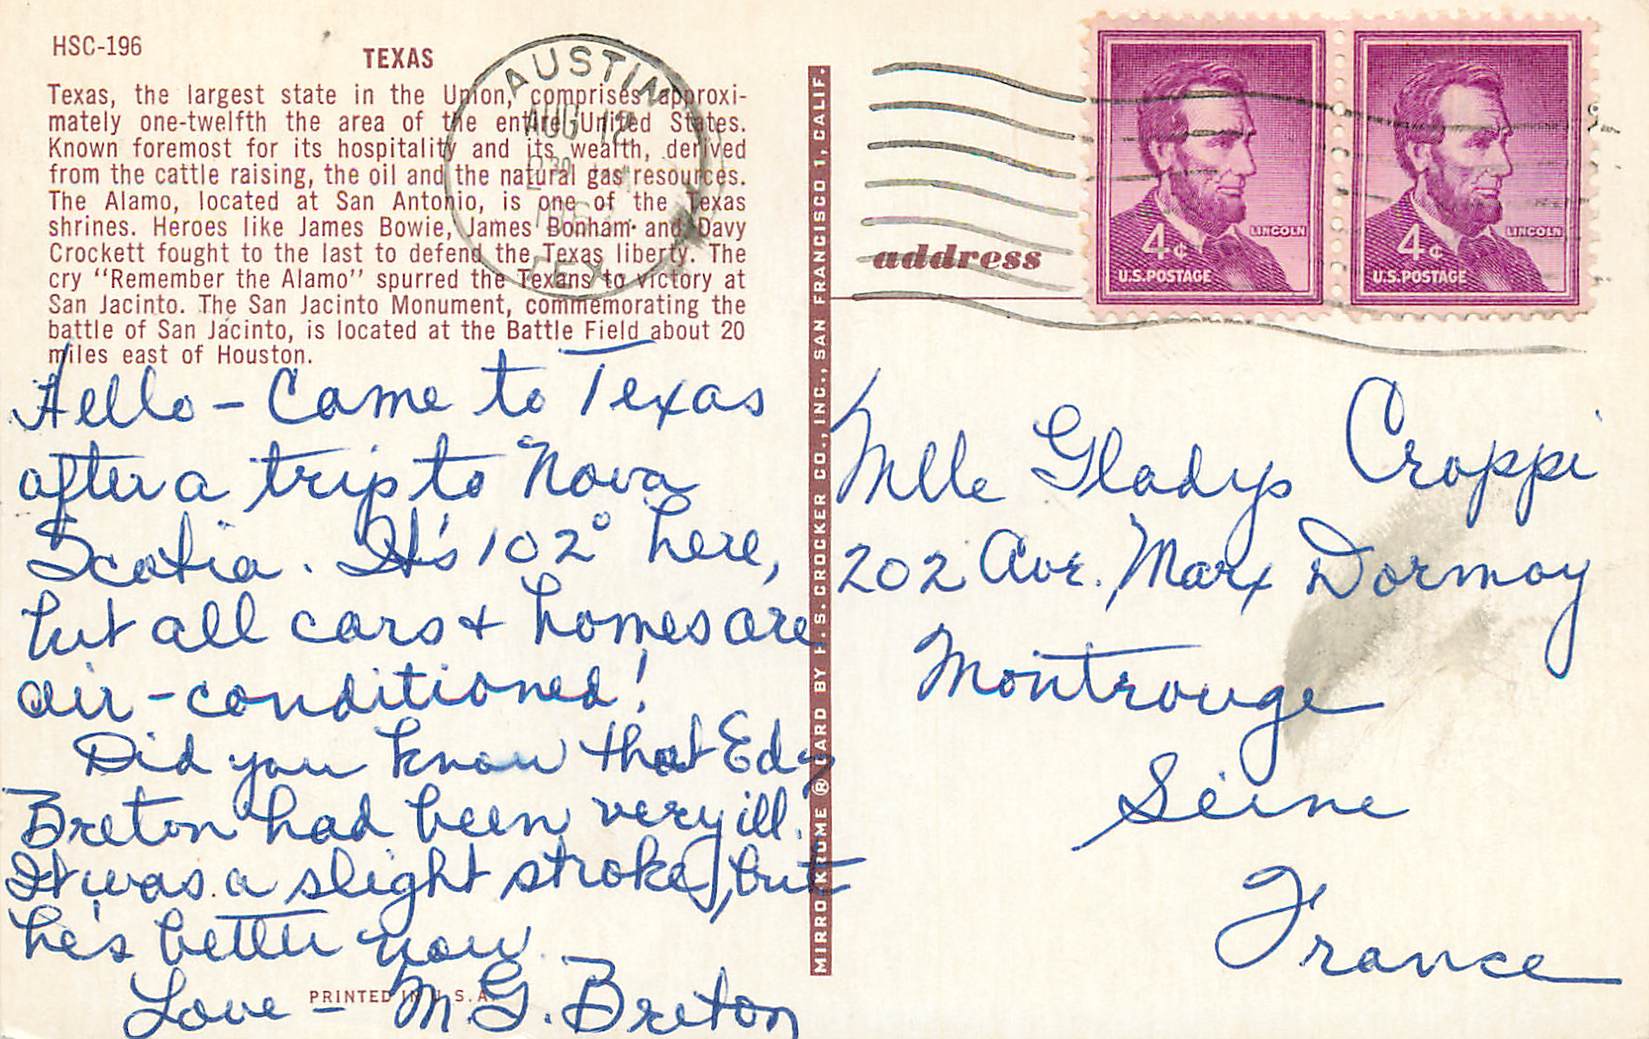 HSC-196
TEXAS
Texas, the largest state in the Union, comprises approxi-
mately one-twelfth the area of the entire United States.
Known foremost for its hospitality and its wealth, derived
from the cattle raising, the oil and the natural gas resources.
The Alamo, located at San Antonio, is one of the Texas
shrines. Heroes like James Bowie, James Bonham and Davy
Crockett fought to the last to defend the Texas liberty. The
cry "Remember the Alamo" spurred the Texans to victory at
San Jacinto. The San Jacinto Monument, commemorating the
battle of San Jacinto, is located at the Battle Field about 20
miles east of Houston.
Hello – Came to Texas
after a trip to Nova
Scotia. It's 102° here,
but all cars + homes are
air-conditioned!
Did you know that Edy
Breton had been very ill.
It was a slight stroke, but
he's better now.
Love – M. G. Breton
PRINTED IN U.S.A.
MIRRO-KROME ® CARD BY H.S. CROCKER CO., INC., SAN FRANCISCO 1, CALIF.
AUSTIN
AUG 12
TEX.
address
4¢
LINCOLN
U.S. POSTAGE
4¢
LINCOLN
U.S. POSTAGE
Mlle Gladys Croppi
202 Ave. Marx Dormoy
Montrouge
Seine
France